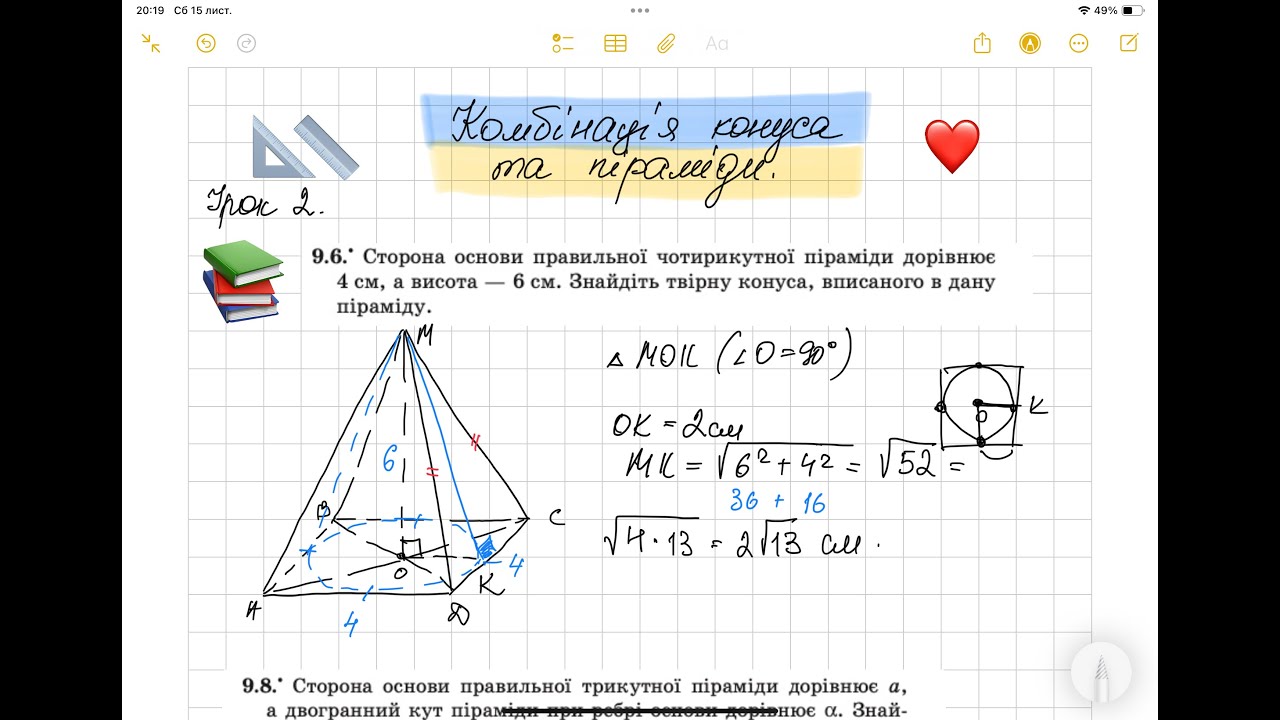 20:19 Сб 15 лист.
49%
Aa
Комбінація конуса
та піраміди.
Урок 2.
9.6.• Сторона основи правильної чотирикутної піраміди дорівнює
4 см, а висота — 6 см. Знайдіть твірну конуса, вписаного в дану
піраміду.
M
△ MOK (∠O=90°)
K
O
OK = 2см
6
MK = √6² + 4² = √52 =
36 + 16
B
C
√4 · 13 = 2√13 см .
O
4
K
A
D
4
9.8.• Сторона основи правильної трикутної піраміди дорівнює a,
а двогранний кут піраміди при ребрі основи дорівнює α. Знай-